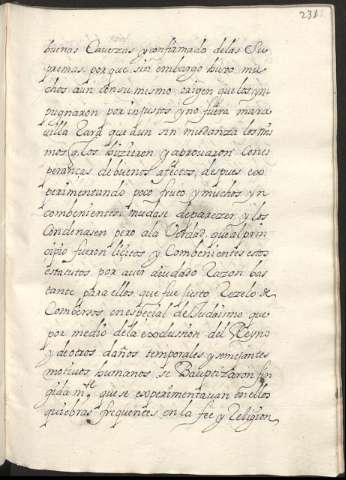 231
buenas Cauezas y confirmado de las Su
premas, por que sin embargo huvo mu
chos aun con su mismo origen que los ym
pugnaron por injustos y no fuera mara
villa Rara que aun sin mudanza los mis
mos q̃ los hizieron y aprouaron con es
peranças de buenos afectos, despues ex
perimentando poco fruto y muchos yn
combenientes mudase de parezer, y los
Condenasen pero a la Verdad, que al prin
cipio fueron licitos y Combenientes estos
estatutos, por auer ayudado Razon bas
tante para ellos, que fue justo Rezelo de
Combersos, en especial de Judaismo que
por medio de la exsclusion del Reyno
y de otros daños temporales y semejantes
motiuos humanos se Bauptizaron fin
gidam.te que se experimentauan en ellos
quiebras frequentes en la fee y Religion